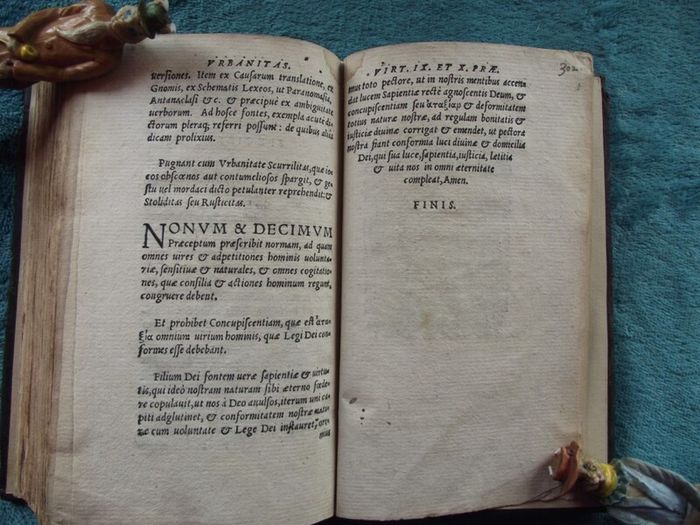 VRBANITAS.
uersiones. Item ex Causarum translatione, ex
Gnomis, ex Schematis Lexeos, ut Paronomasia,
Antanaclasi & c. & præcipuè ex ambiguitate
uerborum. Ad hosce fontes, exempla acutè di-
ctorum pleraq; referri possunt: de quibus aliàs
dicam prolixius.
Pugnant cum Vrbanitate Scurrilitas, quæ io-
cos obscœnos aut contumeliosos spargit, & ge-
stu uel mordaci dicto petulanter reprehendit: &
Stoliditas seu Rusticitas.
NONVM & DECIMVM
Præceptum præscribit normam, ad quam
omnes uires & adpetitiones hominis volunta-
riæ, sensitiuæ & naturales, & omnes cogitatio-
nes, quæ consilia & actiones hominum regunt,
congruere debent.
Et prohibet Concupiscentiam, quæ est ἀταξία
omnium uirium hominis, quæ Legi Dei con-
formes esse debebant.
Filium Dei fontem ueræ sapientiæ & uirtu-
tis, qui ideò nostram naturam sibi æterno fœde-
re copulauit, ut nos à Deo auulsos, iterum uni ca-
piti adglutinet, & conformitatem nostræ natu-
ræ cum uoluntate & Lege Dei instauret,
VIRT. IX. ET X. PRÆ. 302
mus toto pectore, ut in nostris mentibus accen-
dat lucem Sapientiæ rectè agnoscentis Deum, &
concupiscentiam seu ἀταξίαν & deformitatem
totius naturæ nostræ, ad regulam bonitatis &
iusticiæ diuinæ corrigat & emendet, ut pectora
nostra fiant conformia luci diuinæ & domicilia
Dei, qui sua luce, sapientia, iusticia, letitia
& uita nos in omni æternitate
compleat, Amen.
FINIS.